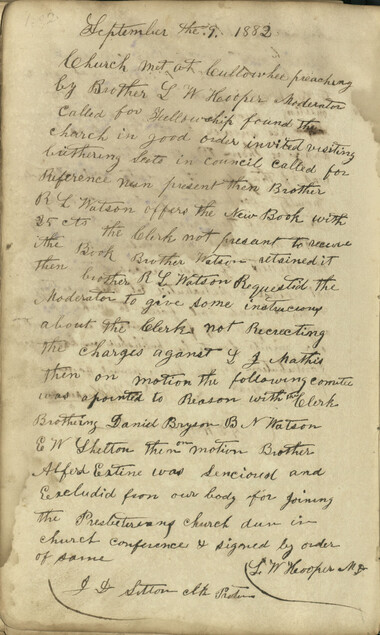 September the 7. 1882
Church met at Cullowhee preaching
by Brother L W Hooper Moderator
Called for Fellowship found the
church in good order invited visiting
brethering Seats in council called for
Reference nun present then Brother
R L Watson offers the New Book with
25 cts the Clerk not presant to receive
the Book Brother Watson retained it
then brother R L Watson Requested the
Moderator to give some instrucions
about the Clerk not Recrecting
the charges aganst L J Mathis
then on motion the following comitee
was apointed to Reason with the Clerk
Brothing Daniel Bryson B N Watson
E W Shelton then on motion Brother
Alferd Extine was Senciored and
Excludid from our body for Joining
the Presbeterians church dun in
church conference & signed by order
of same
L. W Hooper M
J D Sitton clk Protem